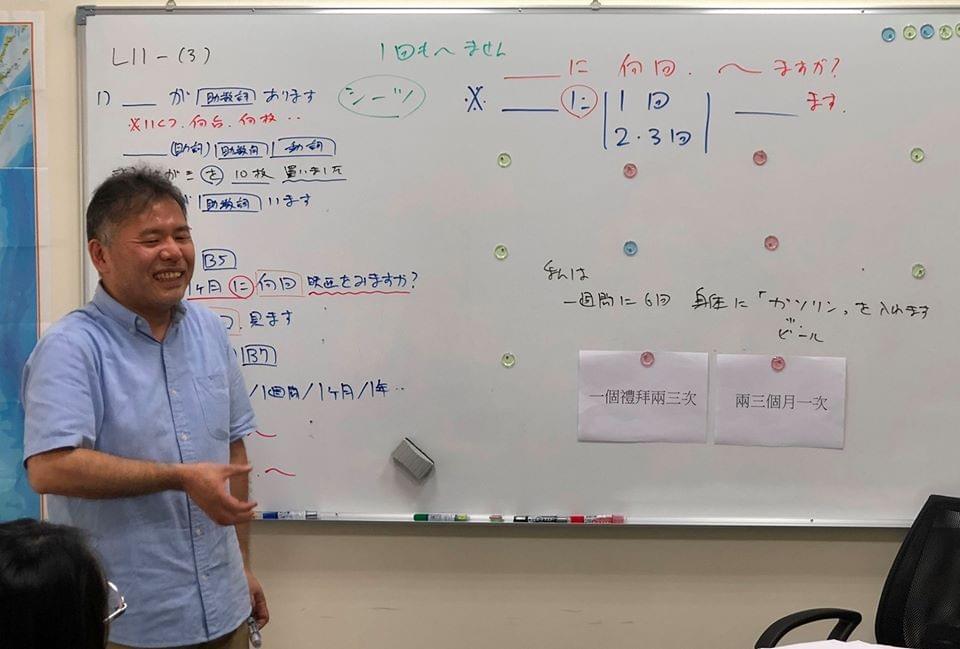 L11-(3)
1) ___ が 助数詞 あります
※いくつ. 何台. 何枚 ‥
___(助詞) 助数詞 動詞
がき を 10枚 買いました
助数詞 います
B5
ヶ月 に 何回 映画をみますか?
見ます
B7
/1週間/1ヶ月/1年‥
〜
〜
1回も〜ません
シーツ
___ に 何回. 〜 ますか?
※. ___ に 1回 ___ ます.
2.3回
私は
一週間に6回 身体に「ガソリン」を入れます
ビール
一個禮拜兩三次
兩三個月一次